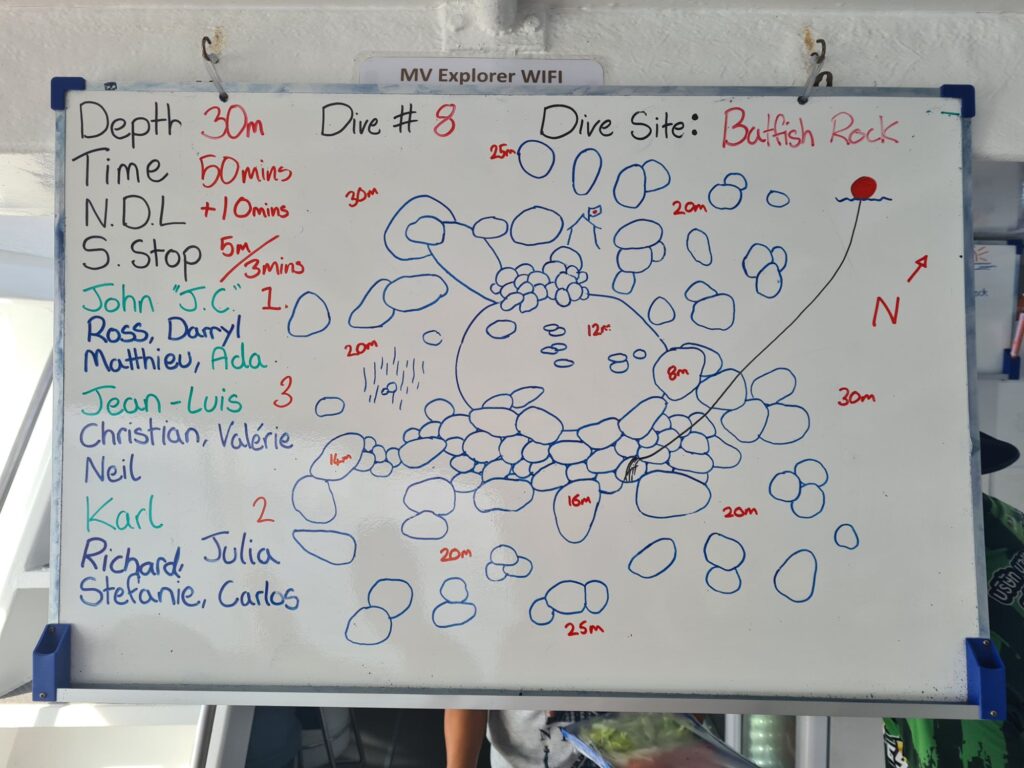 MV Explorer WIFI
Depth 30m Dive # 8 Dive Site: Batfish Rock
Time 50mins
N.D.L +10mins
S. Stop 5m/3mins
John "J.C." 1.
Ross, Darryl
Matthieu, Ada
Jean-Luis 3
Christian, Valérie
Neil
Karl 2
Richard, Julia
Stefanie, Carlos
25m
30m
20m
N
12m
20m
8m
30m
14m
16m
20m
20m
25m